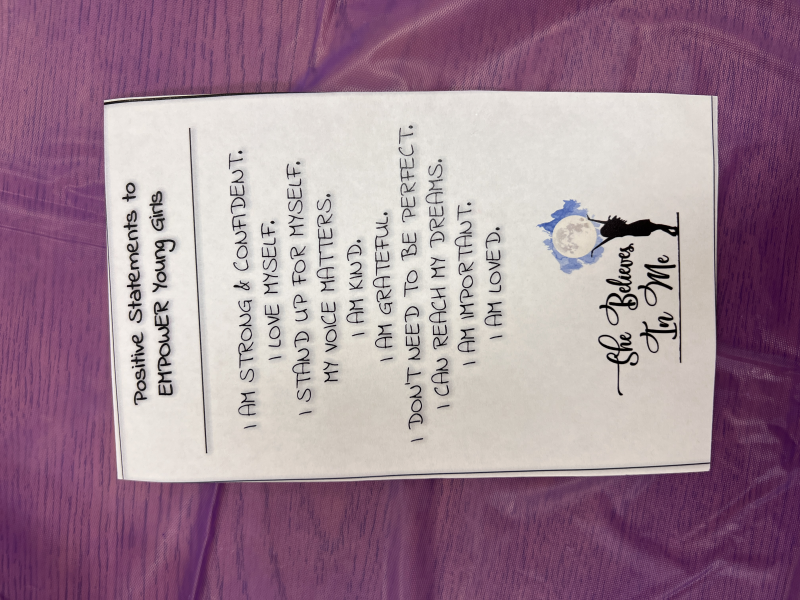 Positive Statements to
EMPOWER Young Girls
I AM STRONG & CONFIDENT.
I LOVE MYSELF.
I STAND UP FOR MYSELF.
MY VOICE MATTERS.
I AM KIND.
I AM GRATEFUL.
I DON'T NEED TO BE PERFECT.
I CAN REACH MY DREAMS.
I AM IMPORTANT.
I AM LOVED.
She Believes
In Me